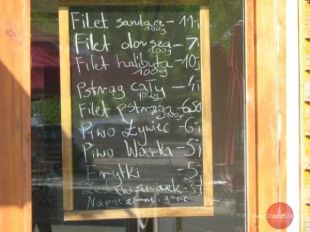 Filet sandacz - 11,-
100g
Filet dorsza - 7,-
100g
Filet halibuta - 10,-
100g
Pstrąg cały - 4,-
Filet pstrąga - 6,50
100g
Piwo Żywiec - 6,-
Piwo Warka - 5,-
Frytki - 5,-
Zestaw surówek - 3,-
Napoje zimne